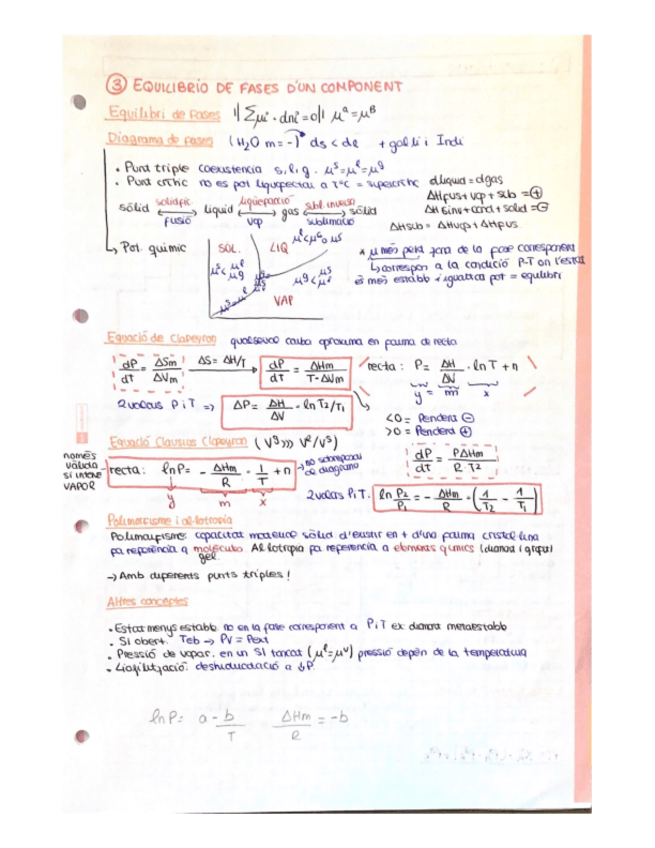 ③ EQUILIBRIO DE FASES D'UN COMPONENT
Equilibri de Fases || Σμi · dni = 0 || μᵅ = μᴮ
Diagrama de fases (H₂O m = -) ds < de + gal·li i Indi
• Punt triple coexistencia s, l, g. μˢ = μˡ = μᵍ
• Punt crític no es pot liquefectar a TºC = supercrític dliquid = dgas
sòlid solidific. fusió liquid liqüefacció vap gas subl. inversa sublimació sòlid
ΔHfus + vap + sub = ⊕
ΔH sinv + cond + solid = ⊖
ΔHsub = ΔHvap + ΔHfus.
↳ Pot. quimic
SOL. LIQ VAP
μˢ < μˡ μᵍ
μˡ < μᴳ o μˢ
μg < μˢ μˡ
* μ més petit fora de la fase corresponent
↳ correspon a la condició P-T on l'estat
és més estable i igualtat pot = equilibri
Equació de Clapeyron qualsevol canvi aproxima en forma de recta
dP/dT = ΔSm/ΔVm ΔS = ΔH/T → dP/dT = ΔHm/T·ΔVm recta: P = ΔH/ΔV · ln T + n
y = m x
2 valors P i T => ΔP = ΔH/ΔV · ln T₂/T₁
<0 = Pendent ⊖
>0 = Pendent ⊕
Equació Clausius Clapeyron (Vᵍ >>> Vˡ/Vˢ)
només vàlida si intervé VAPOR
recta: ln P = - ΔHm/R · 1/T + n
y m x
→ no sobrepassi el diagrama
dP/dT = PΔHm/R·T²
2 valors P i T. ln P₂/P₁ = - ΔHm/R · (1/T₂ - 1/T₁)
Polimorfisme i al·lotropia
Polimorfisme: capacitat material sòlid d'existir en + d'una forma cristal·lina
fa referència a molècules. Al·lotropia fa referencia a elements químics (diamant i grafit)
gel
→ Amb diferents punts triples!
Altres conceptes
• Estat menys estable no en la fase corresponent a P i T ex diamant metaestable
• SI obert. Teb → Pv = Pext
• Pressió de vapor. en un SI tancat (μˡ = μᵛ) pressió depèn de la temperatura
• Liofilització: deshidratació a ↓P.
ln P = a - b/T ΔHm/R = -b